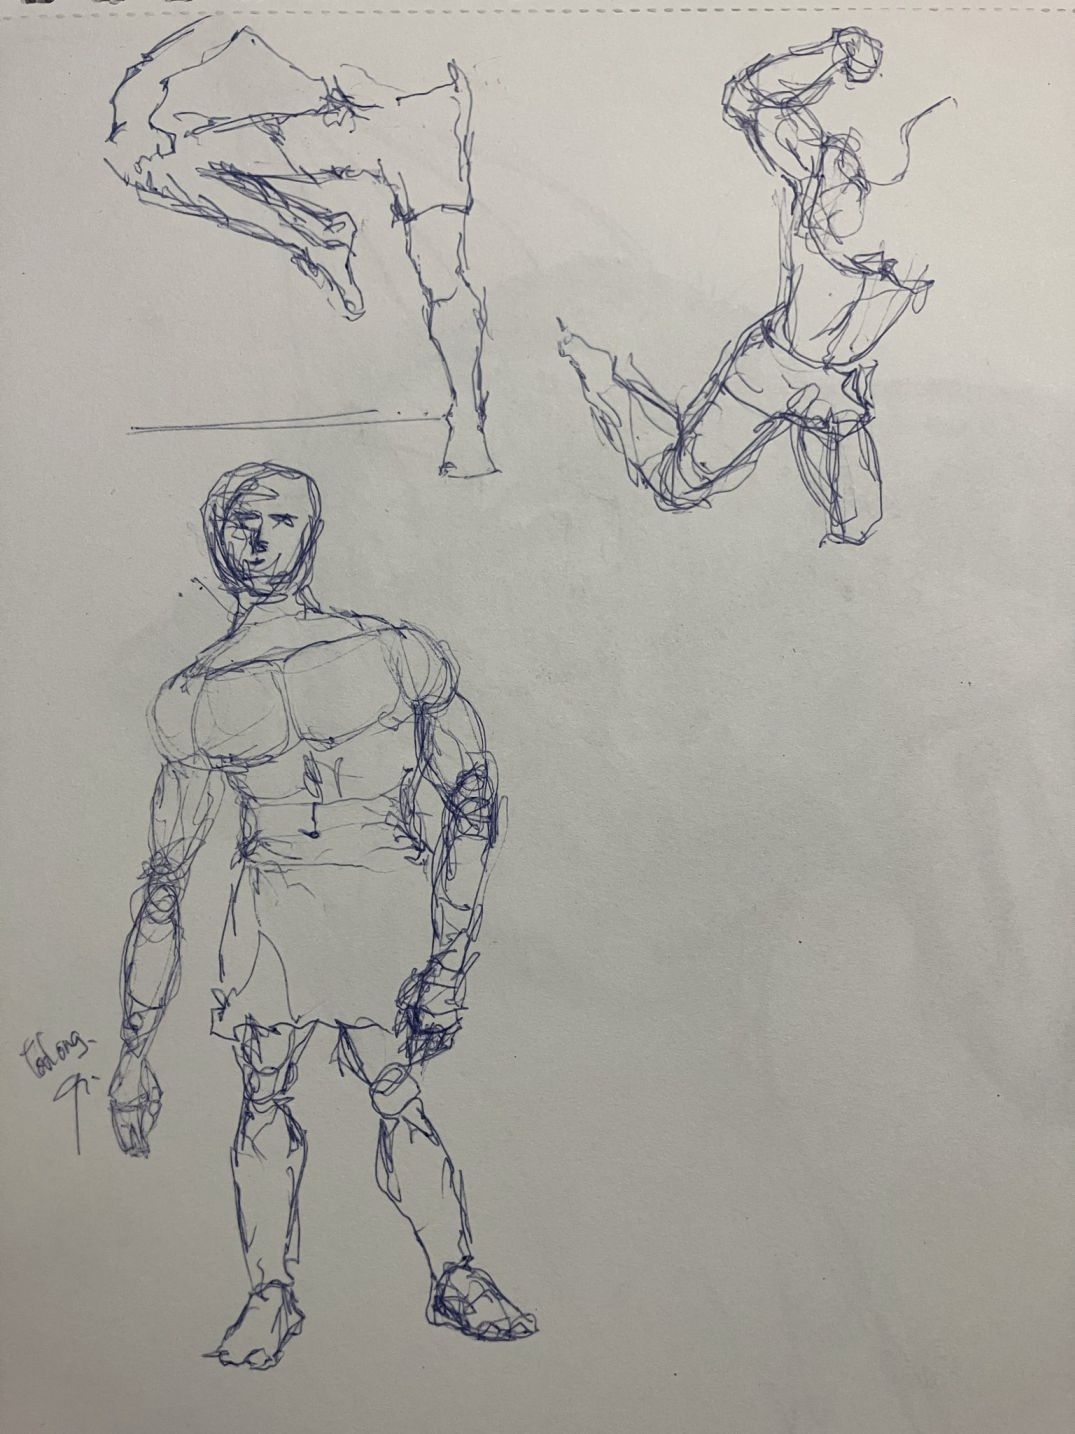 too long